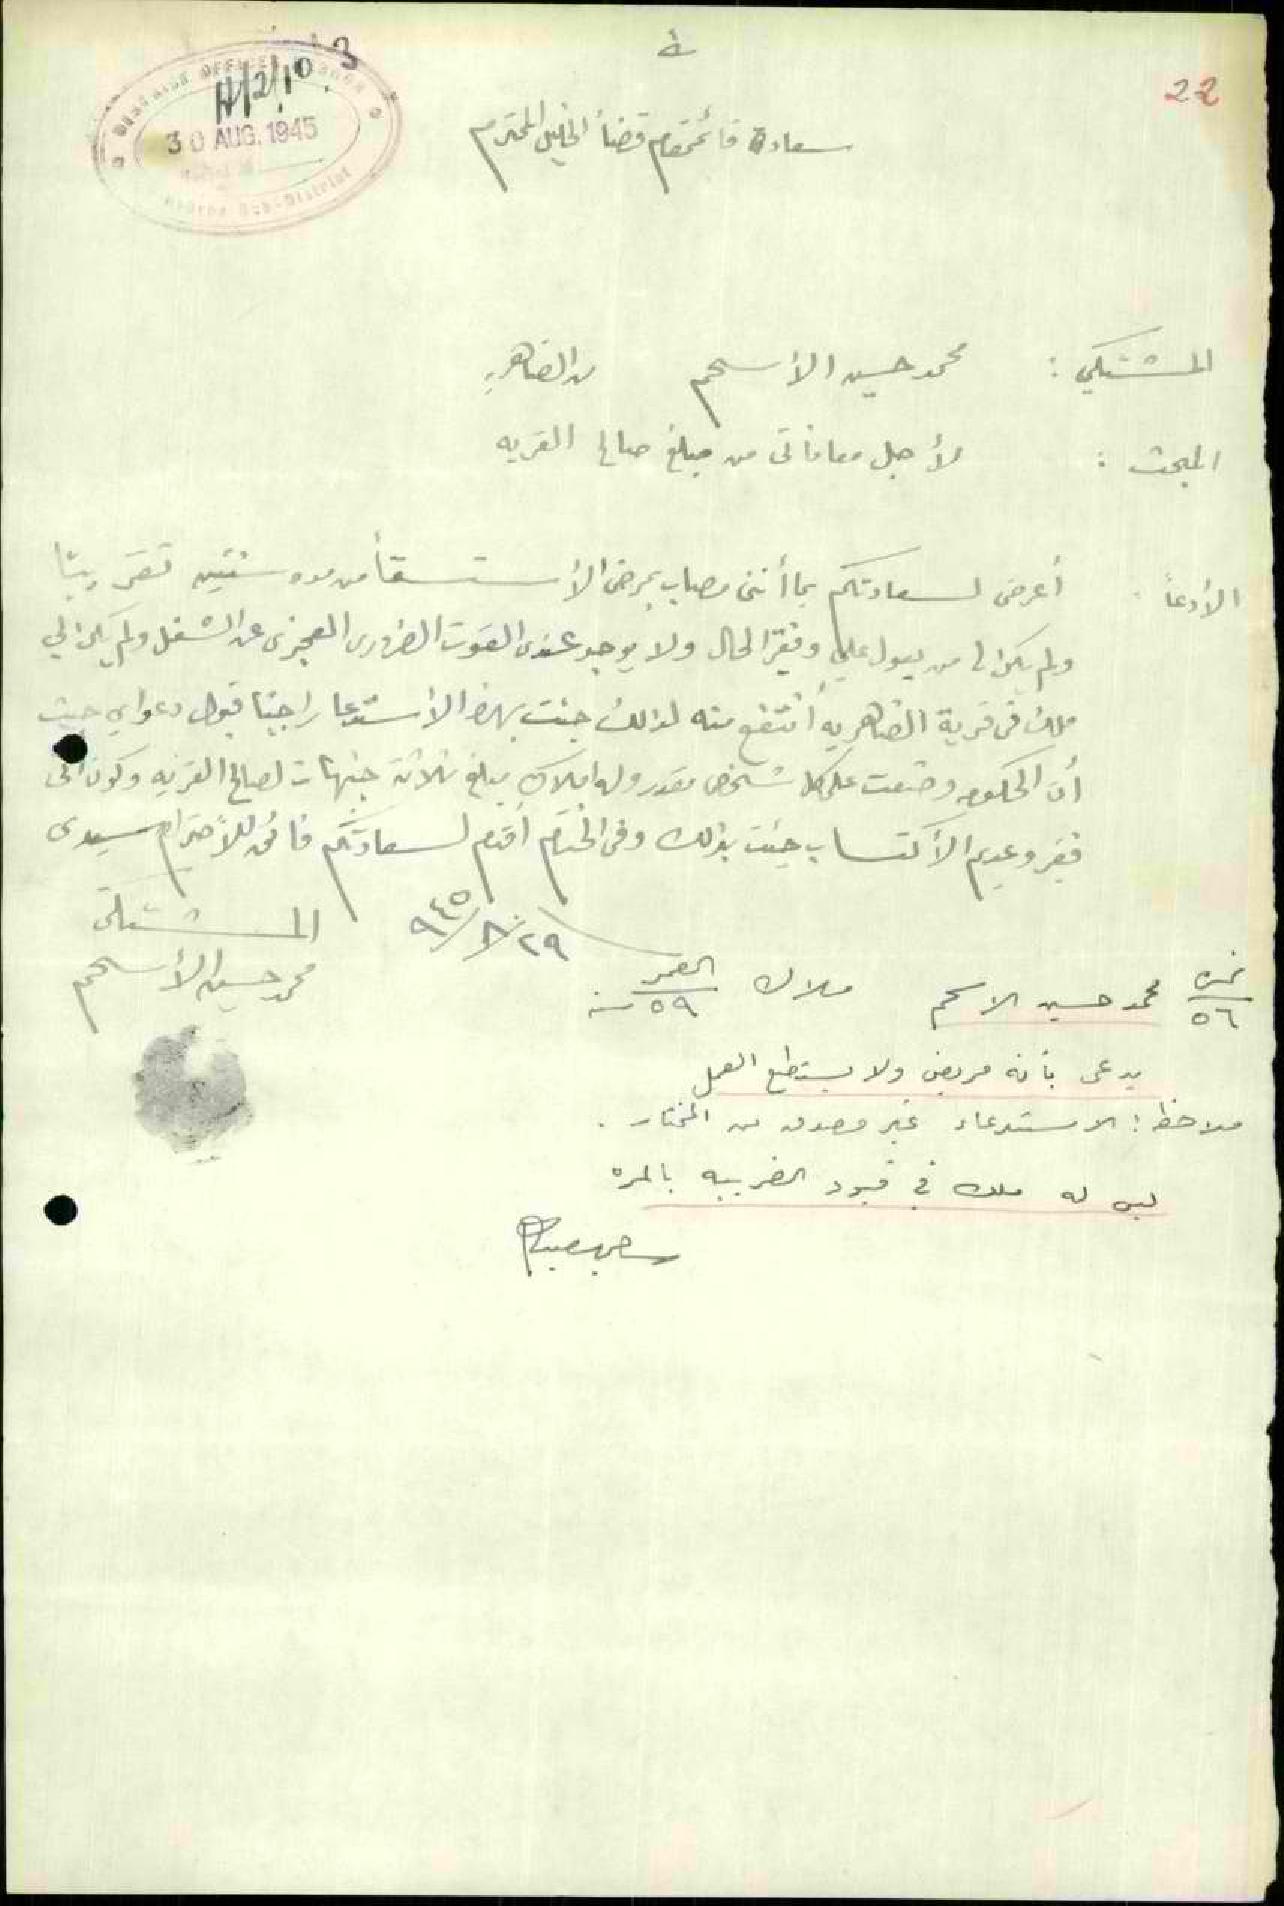 22
H/2/10.3
DISTRICT OFFICER
30 AUG. 1945
Hebron Sub-District
سعادة قائمقام قضأ الخليل المحترم
المشتكي : محمد حسين الأسحم من الضاهريه
المبحث : لأجل معافاتى من مبلغ صالح القريه
الأدعأ : أعرض لسعادتكم بما أننى مصاب بمرض الأستسقأ من مده سنتين تقريبًا
ولم يكن لى من يعول علي وفقير الحال ولا يوجد عندى القوت الضرورى لعجزى عن الشغل ولم يكن لي
ملك فى قرية الضاهريه أنتفع منه لذالك جئت بهذا الأستدعا راجيًا قبول دعواي حيث
أن الحكومه وضعت على كل شخص مقدر وله املاك مبلغ ثلاثة جنيهات لصالح القريه وكون انى
فقير وعديم الأكتساب جئت بذلك وفى الختام أقدم لسعادتكم فائق للأحترام سيدى
٢٩/٨/٩٤٥
المشتكى
محمد حسين الأسحم
نمرة ٥٦ محمد حسين الاسحم ملاك العمر ٥٩ سنه
يدعى بأنه مريض ولا يستطيع العمل
ملاحظه : الاستدعاء غير مصدق من المختار .
ليس له ملك في قيود الضريبه بالمره